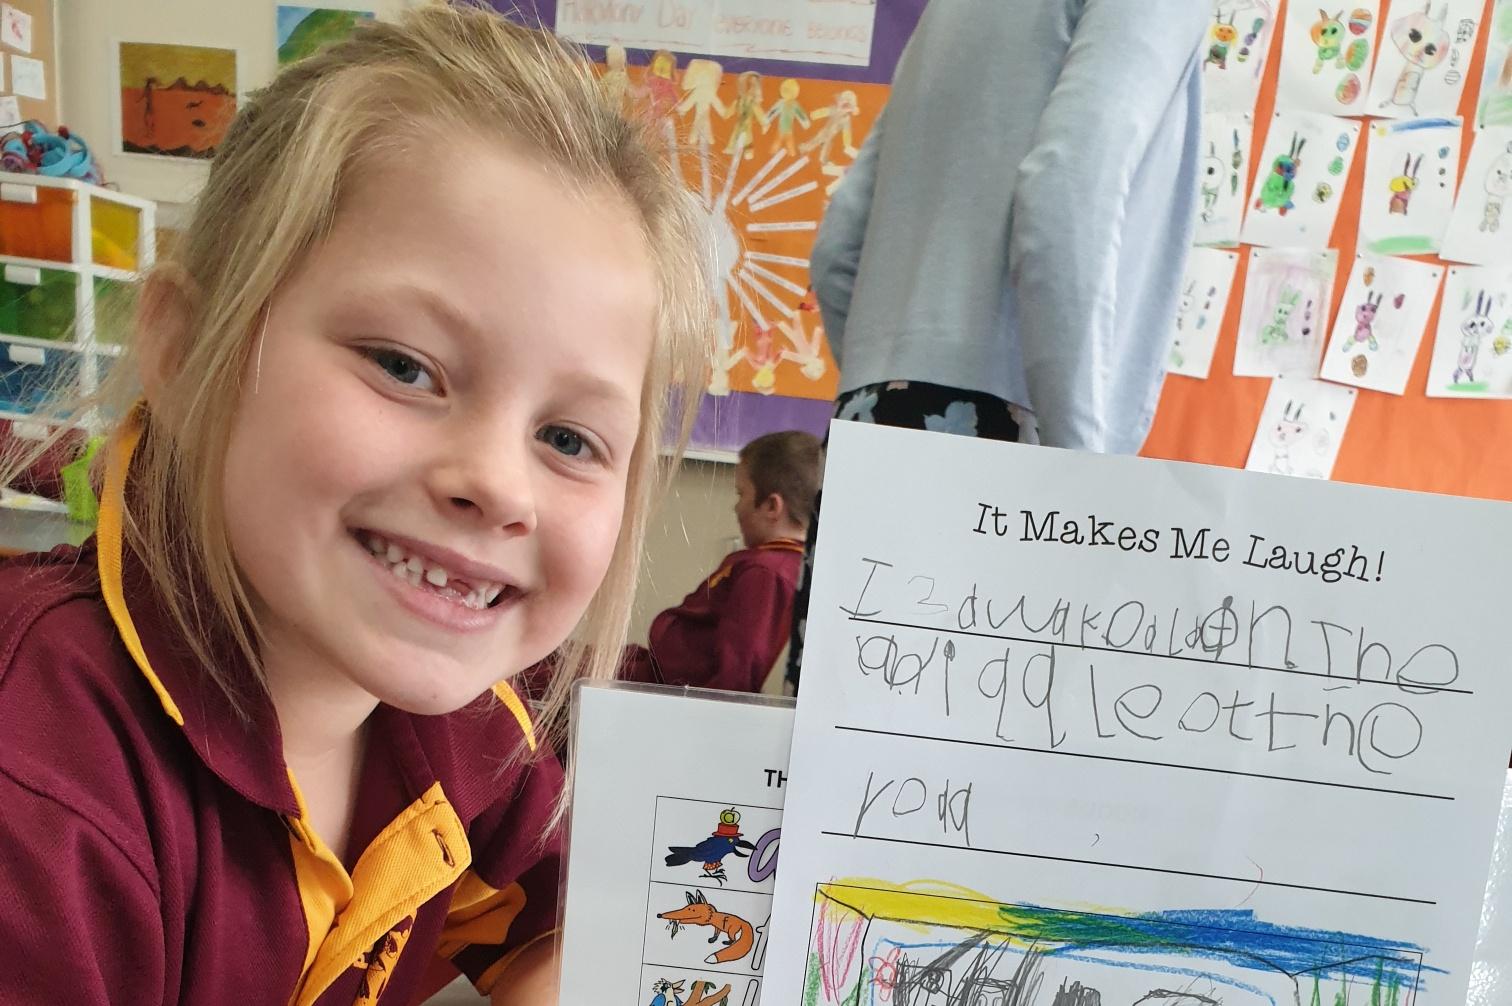 Harmony Day everyone belongs
It Makes Me Laugh!
I s a w a kOalat On The
midqleotthe
road
TH